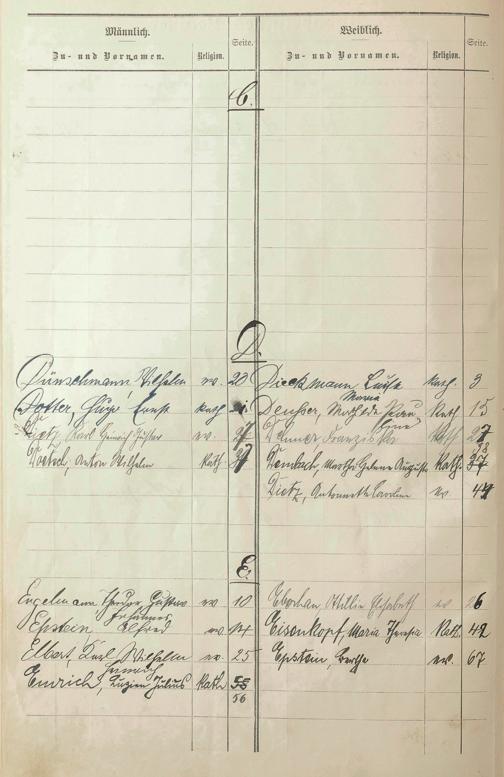 Männlich. Weiblich.
Zu- und Vornamen. Religion. Seite. Zu- und Vornamen. Religion. Seite.
C.
D.
Dünschmann, Wilhelm ev. 20 Dieckmann Luise kath. 3
Maria
Dotter, Hugo Ernst kath Deußer, Mathilde kath 15
Dietz, Karl Heinrich ev. 27 Demmer Franziska kath 27
Doetsch, Anton Wilhelm kath. 37 Dembach, Martha Helene Auguste kath. 37
Dietz, Antoinette Caroline ev 47
E.
Engelmann Theodor Gustav ev 10 Ottilie Elisabeth ev 26
Johannes
Epstein Alfred ev. 14 Eisenkopf, Maria Theresia kath. 42
Elbert, Karl Wilhelm ev. 25 Epstein, Berthe ev. 67
Emrich, Luzien Julius kath 55
56